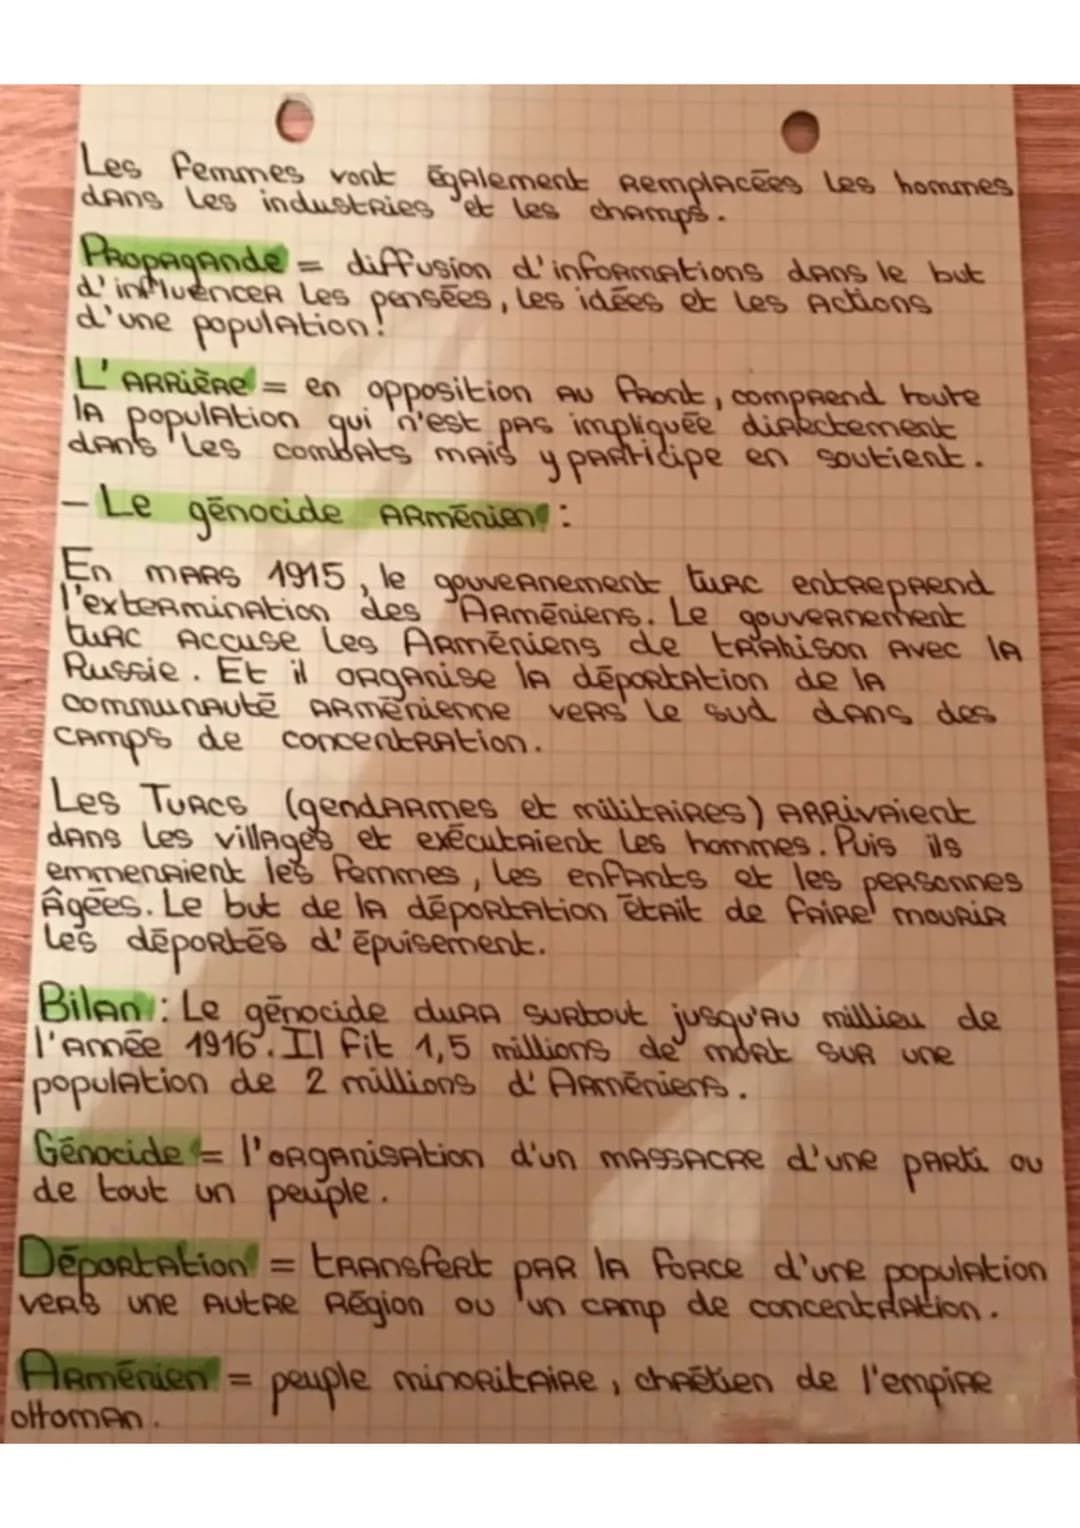 Les femmes vont également remplacées les hommes
dans les industries et les champs.
Propagande = diffusion d'informations dans le but
d'influencer les pensées, les idées et les actions
d'une population!
L'arrière = en opposition au front, comprend toute
la population qui n'est pas impliquée directement
dans les combats mais y participe en soutient.
- Le génocide Arménien :
En mars 1915, le gouvernement turc entreprend
l'extermination des Arméniens. Le gouvernement
turc accuse les Arméniens de trahison avec la
Russie. Et il organise la déportation de la
communauté arménienne vers le sud dans des
camps de concentration.
Les Turcs (gendarmes et militaires) arrivaient
dans les villages et exécutaient les hommes. Puis ils
emmenaient les femmes, les enfants et les personnes
Âgées. Le but de la déportation était de faire mourir
les déportés d'épuisement.
Bilan : Le génocide dura surtout jusqu'au millieu de
l'année 1916. Il fit 1,5 millions de mort sur une
population de 2 millions d'Arméniens.
Génocide = l'organisation d'un massacre d'une parti ou
de tout un peuple.
Déportation = transfert par la force d'une population
vers une autre région ou un camp de concentration.
Arménien = peuple minoritaire, chrétien de l'empire
ottoman.